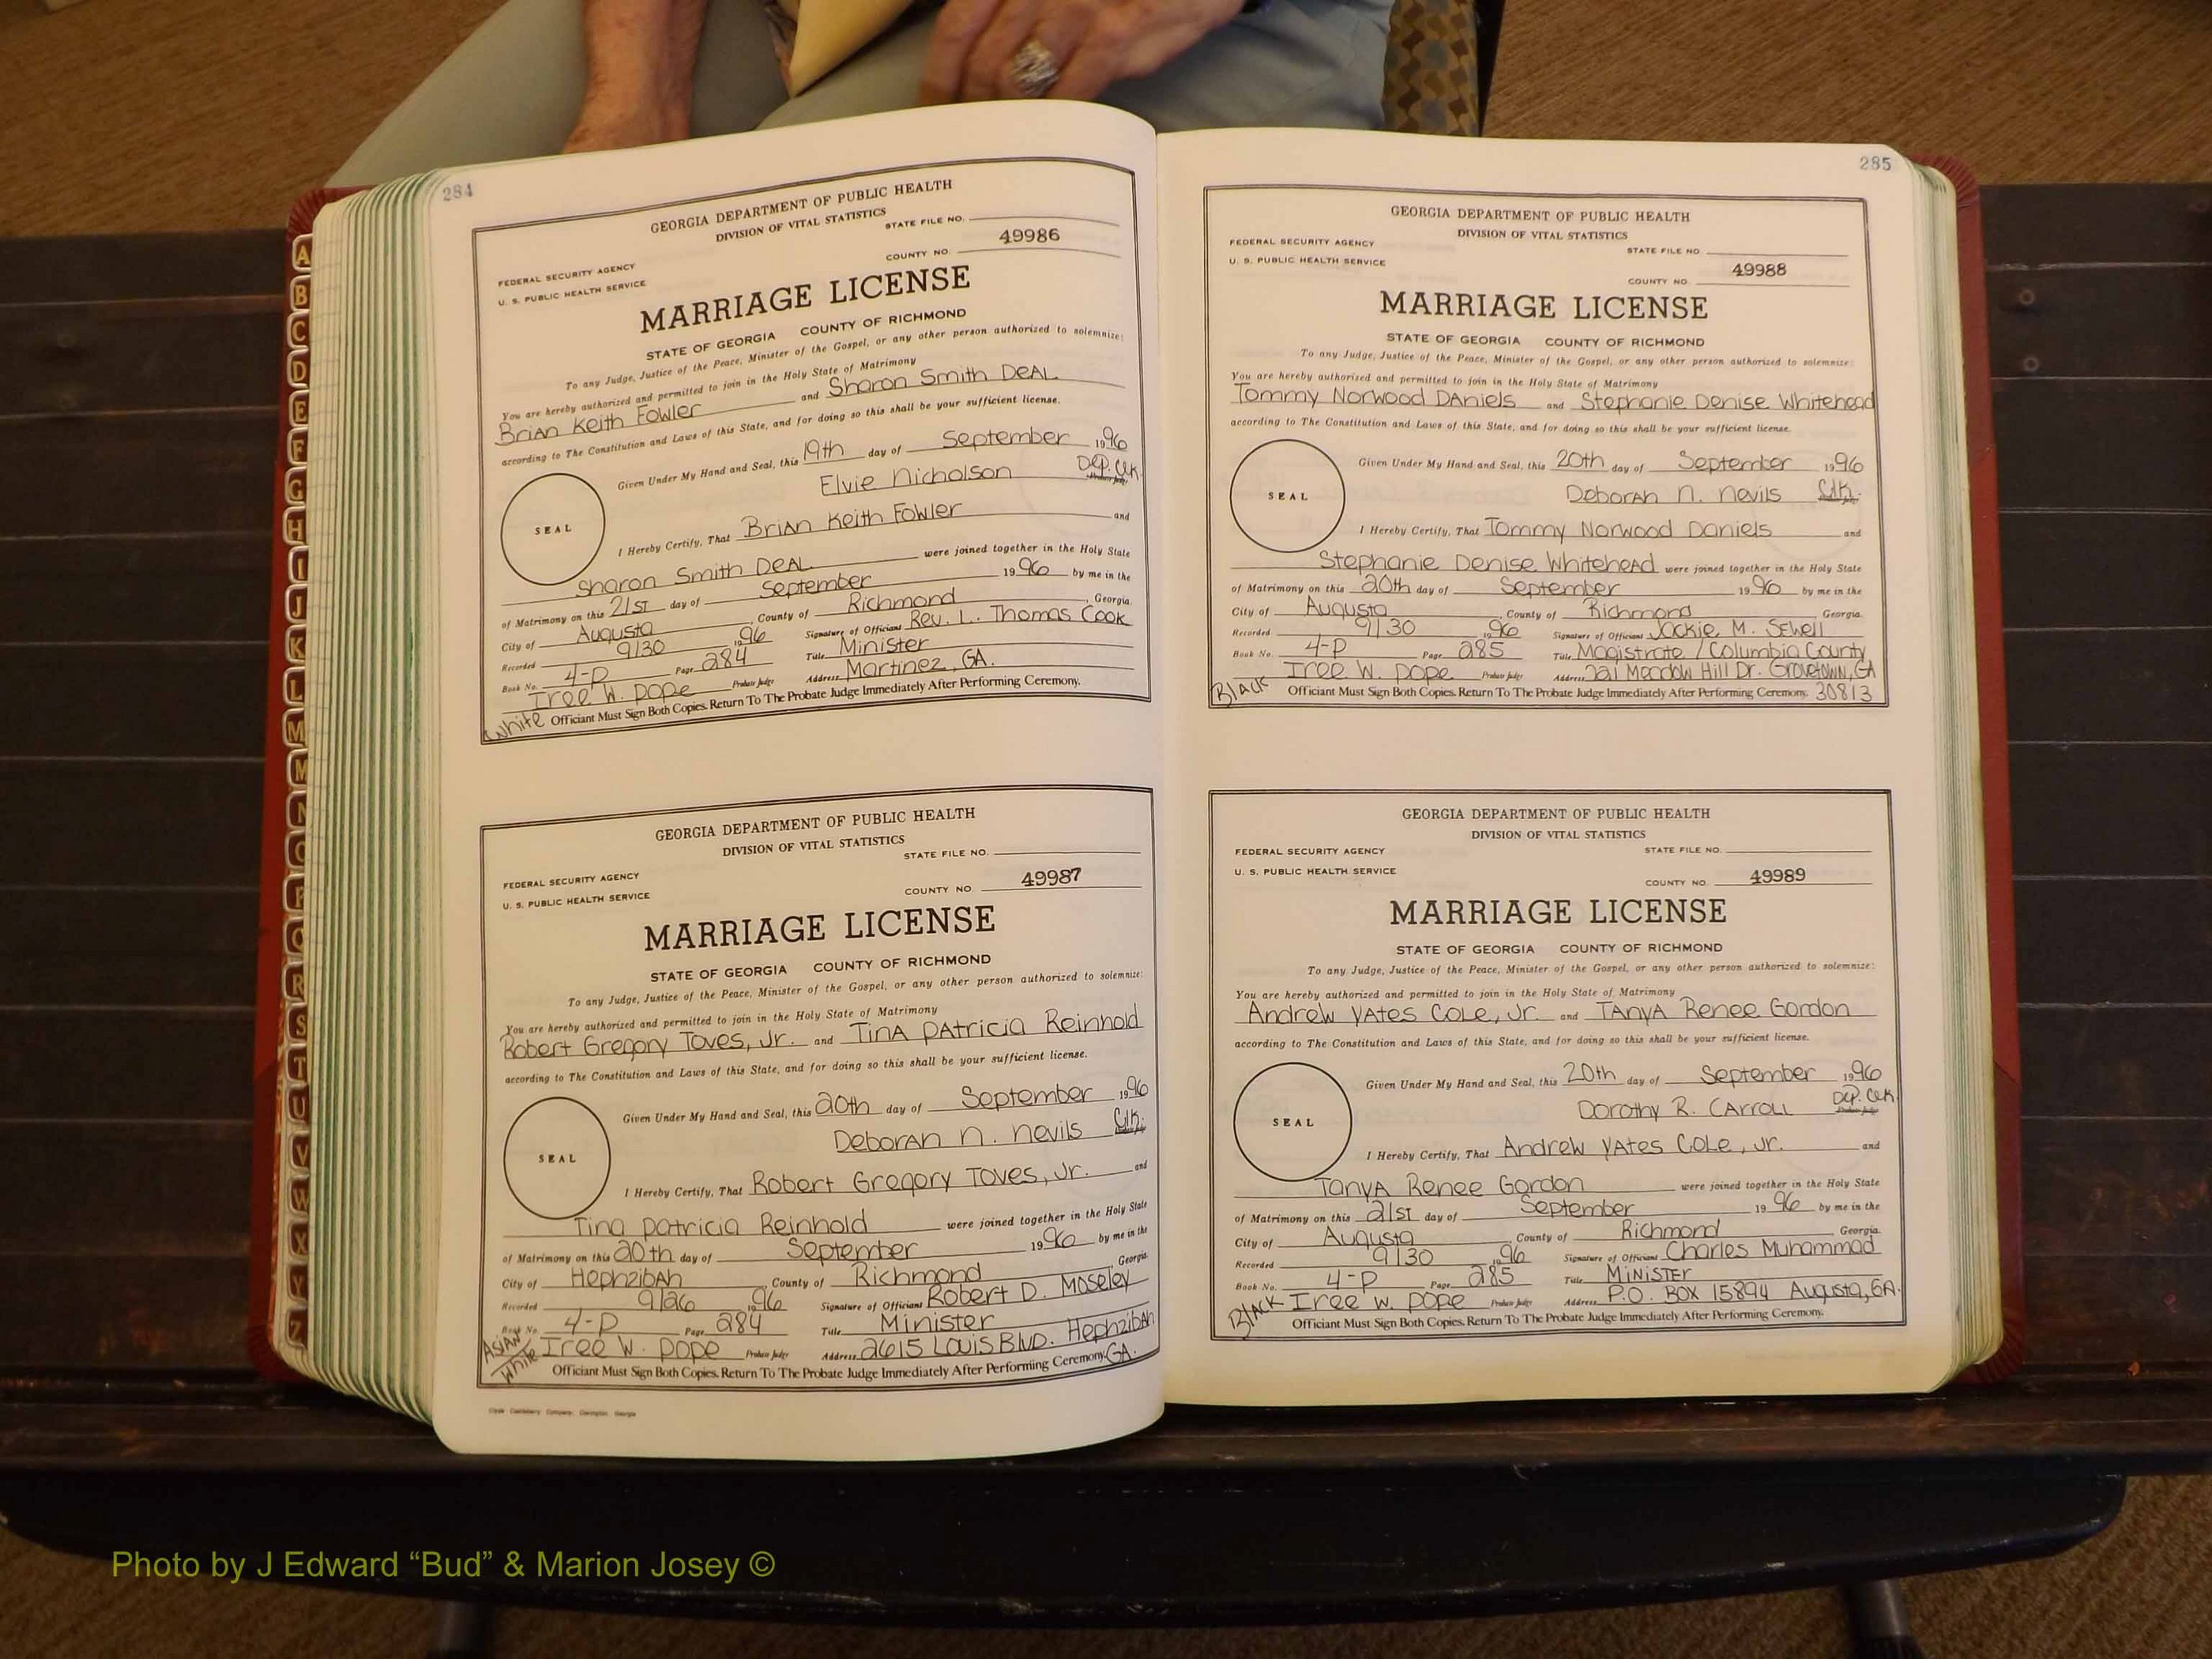 284
GEORGIA DEPARTMENT OF PUBLIC HEALTH
DIVISION OF VITAL STATISTICS
STATE FILE NO.
COUNTY NO. 49986
FEDERAL SECURITY AGENCY
U. S. PUBLIC HEALTH SERVICE
MARRIAGE LICENSE
STATE OF GEORGIA COUNTY OF RICHMOND
To any Judge, Justice of the Peace, Minister of the Gospel, or any other person authorized to solemnize:
You are hereby authorized and permitted to join in the Holy State of Matrimony
Brian Keith Fowler and Sharon Smith Deal
according to The Constitution and Laws of this State, and for doing so this shall be your sufficient license.
Given Under My Hand and Seal, this 19th day of September 1996
Elvie Nicholson Dep. Clk.
SEAL
I Hereby Certify, That Brian Keith Fowler and
Sharon Smith Deal were joined together in the Holy State
of Matrimony on this 21st day of September 1996 by me in the
City of Augusta, County of Richmond, Georgia.
Recorded 9/30 1996 Signature of Officiant Rev. L. Thomas Cook
Book No. 4-P Page 284 Title Minister
Iree W. Pope Probate Judge Address Martinez, GA.
White Officiant Must Sign Both Copies. Return To The Probate Judge Immediately After Performing Ceremony.
GEORGIA DEPARTMENT OF PUBLIC HEALTH
DIVISION OF VITAL STATISTICS
STATE FILE NO.
COUNTY NO. 49987
FEDERAL SECURITY AGENCY
U. S. PUBLIC HEALTH SERVICE
MARRIAGE LICENSE
STATE OF GEORGIA COUNTY OF RICHMOND
To any Judge, Justice of the Peace, Minister of the Gospel, or any other person authorized to solemnize:
You are hereby authorized and permitted to join in the Holy State of Matrimony
Robert Gregory Toves, Jr. and Tina Patricia Reinhold
according to The Constitution and Laws of this State, and for doing so this shall be your sufficient license.
Given Under My Hand and Seal, this 20th day of September 1996
Deborah N. Nevils Clk.
SEAL
I Hereby Certify, That Robert Gregory Toves, Jr. and
Tina Patricia Reinhold were joined together in the Holy State
of Matrimony on this 20th day of September 1996 by me in the
City of Hephzibah, County of Richmond, Georgia.
Recorded 9/26 1996 Signature of Officiant Robert D. Moseley
Book No. 4-P Page 284 Title Minister
Asian Iree W. Pope Probate Judge Address 2615 Louis Blvd. Hephzibah
White Officiant Must Sign Both Copies. Return To The Probate Judge Immediately After Performing Ceremony. GA.
285
GEORGIA DEPARTMENT OF PUBLIC HEALTH
DIVISION OF VITAL STATISTICS
FEDERAL SECURITY AGENCY STATE FILE NO.
U. S. PUBLIC HEALTH SERVICE
COUNTY NO. 49988
MARRIAGE LICENSE
STATE OF GEORGIA COUNTY OF RICHMOND
To any Judge, Justice of the Peace, Minister of the Gospel, or any other person authorized to solemnize:
You are hereby authorized and permitted to join in the Holy State of Matrimony
Tommy Norwood Daniels and Stephanie Denise Whitehead
according to The Constitution and Laws of this State, and for doing so this shall be your sufficient license.
Given Under My Hand and Seal, this 20th day of September 1996
Deborah N. Nevils Clk.
SEAL
I Hereby Certify, That Tommy Norwood Daniels and
Stephanie Denise Whitehead were joined together in the Holy State
of Matrimony on this 20th day of September 1996 by me in the
City of Augusta, County of Richmond Georgia.
Recorded 9/30 1996 Signature of Officiant Jackie M. Sewell
Book No. 4-P Page 285 Title Magistrate / Columbia County
Iree W. Pope Probate Judge Address 221 Meadow Hill Dr. Grovetown, GA
Black Officiant Must Sign Both Copies. Return To The Probate Judge Immediately After Performing Ceremony. 30813
GEORGIA DEPARTMENT OF PUBLIC HEALTH
DIVISION OF VITAL STATISTICS
FEDERAL SECURITY AGENCY STATE FILE NO.
U. S. PUBLIC HEALTH SERVICE
COUNTY NO. 49989
MARRIAGE LICENSE
STATE OF GEORGIA COUNTY OF RICHMOND
To any Judge, Justice of the Peace, Minister of the Gospel, or any other person authorized to solemnize:
You are hereby authorized and permitted to join in the Holy State of Matrimony
Andrew Yates Cole, Jr. and Tanya Renee Gordon
according to The Constitution and Laws of this State, and for doing so this shall be your sufficient license.
Given Under My Hand and Seal, this 20th day of September 1996
Dorothy R. Carroll Dep. Clk.
SEAL
I Hereby Certify, That Andrew Yates Cole, Jr. and
Tanya Renee Gordon were joined together in the Holy State
of Matrimony on this 21st day of September 1996 by me in the
City of Augusta, County of Richmond Georgia.
Recorded 9/30 1996 Signature of Officiant Charles Muhammad
Book No. 4-P Page 285 Title Minister
Black Iree W. Pope Probate Judge Address P.O. Box 15894 Augusta, GA.
Officiant Must Sign Both Copies. Return To The Probate Judge Immediately After Performing Ceremony.
A
B
C
D
E
F
G
H
I
J
K
L
M
M
N
O
P
Q
R
S
T
U
V
W
X
Y
Z
Photo by J Edward “Bud” & Marion Josey ©